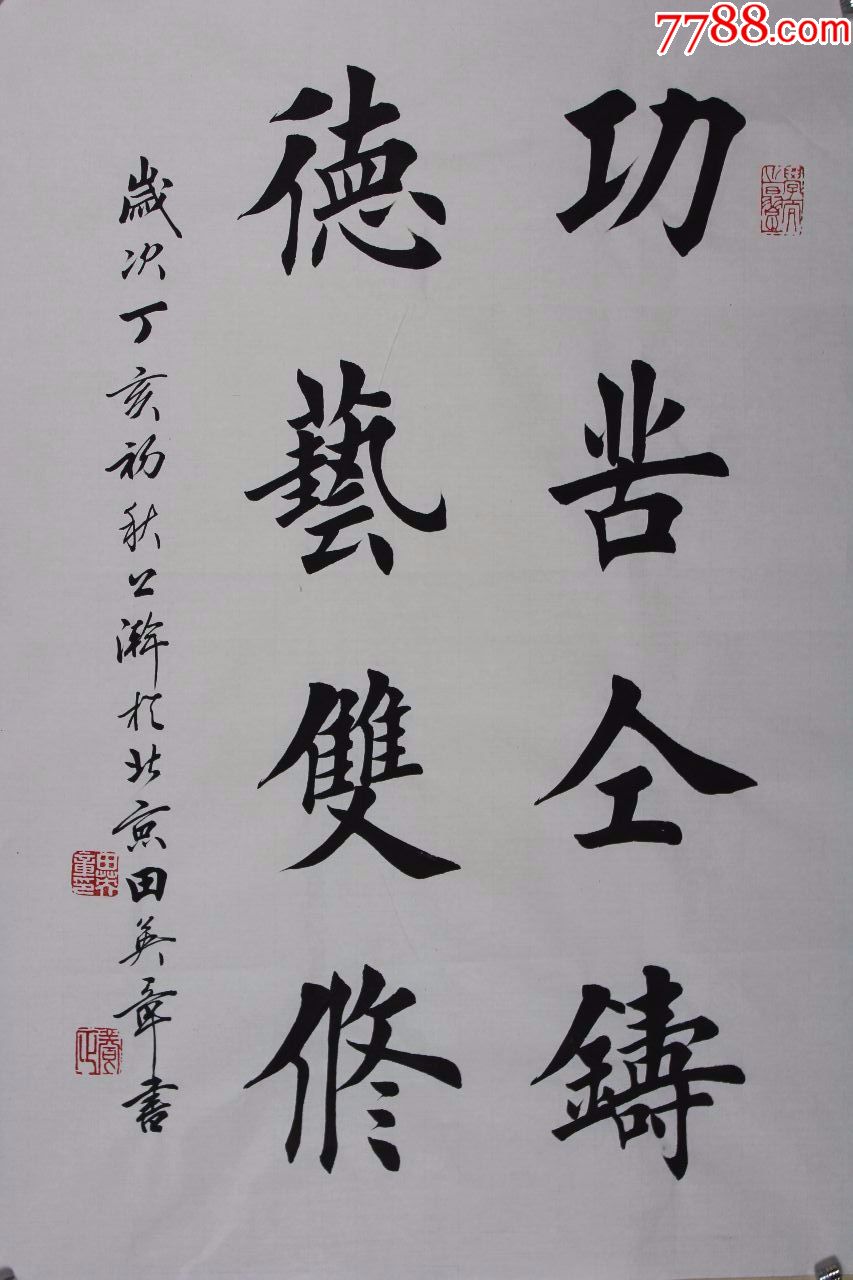 7788.com
功苦仝鑄
德藝雙修
歲次丁亥初秋上澣於北京田英章書